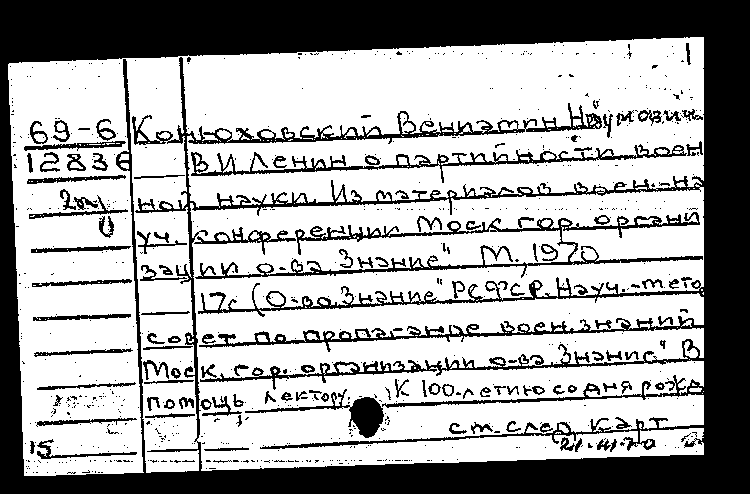 69-6 Конюховский, Вениамин Наумович
12836 В И Ленин о партийности воен
ной науки. Из материалов воен.-на
уч. конференции Моск гор. органи
зации о-ва „Знание" М., 1970
17с (О-во „Знание" РСФСР. Науч.-мето
совет по пропаганде воен. знаний
Моск. гор. организации о-ва „Знание" В
помощь лектору. К 100-летию со дня рожд
см. след карт
15 21-III-70